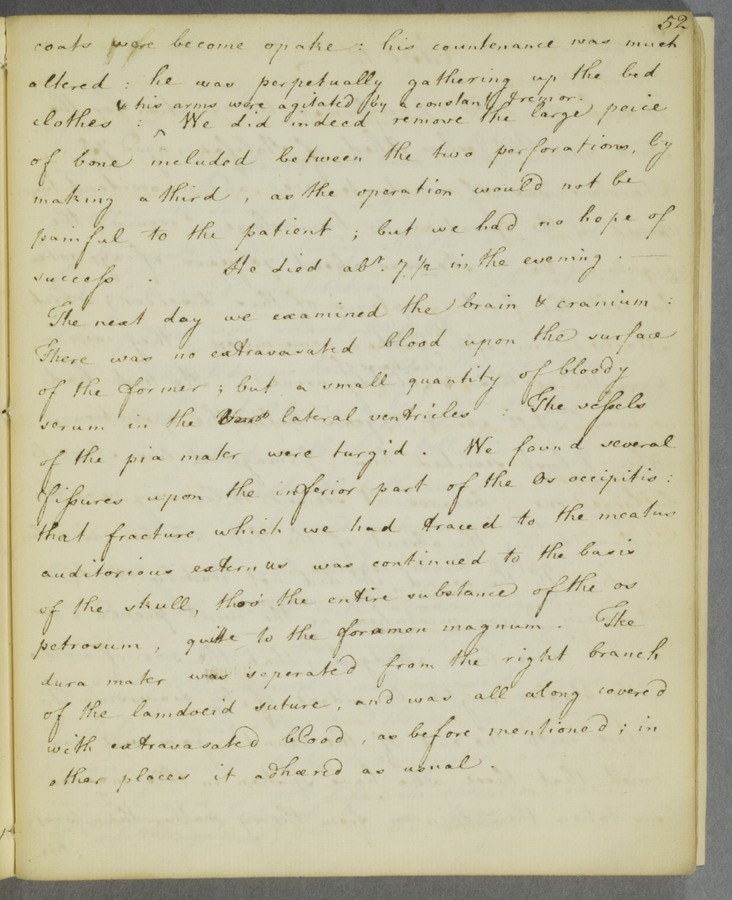 52
coats were become opake : his countenance was much
altered : he was perpetually gathering up the bed
& his arms were agitated by a constant tremor.
clothes : ^ We did indeed remove the large peice
of bone included between the two perforations, by
making a third , as the operation would not be
painful to the patient ; but we had no hope of
success . He died abt. 7 1/2 in the evening . —
The next day we examined the brain & cranium :
There was no extravasated blood upon the surface
of the former ; but a small quantity of bloody
serum in the lateral ventricles : The vessels
of the pia mater were turgid . We found several
fissures upon the inferior part of the Os occipitis :
that fracture which we had traced to the meatus
auditorious externus was continued to the basis
of the skull, thro' the entire substance of the os
petrosum , quitte to the foramen magnum . The
dura mater was seperated from the right branch
of the lamdoeid suture , and was all along covered
with extravasated blood , as before mentioned ; in
other places it adhæred as usual .